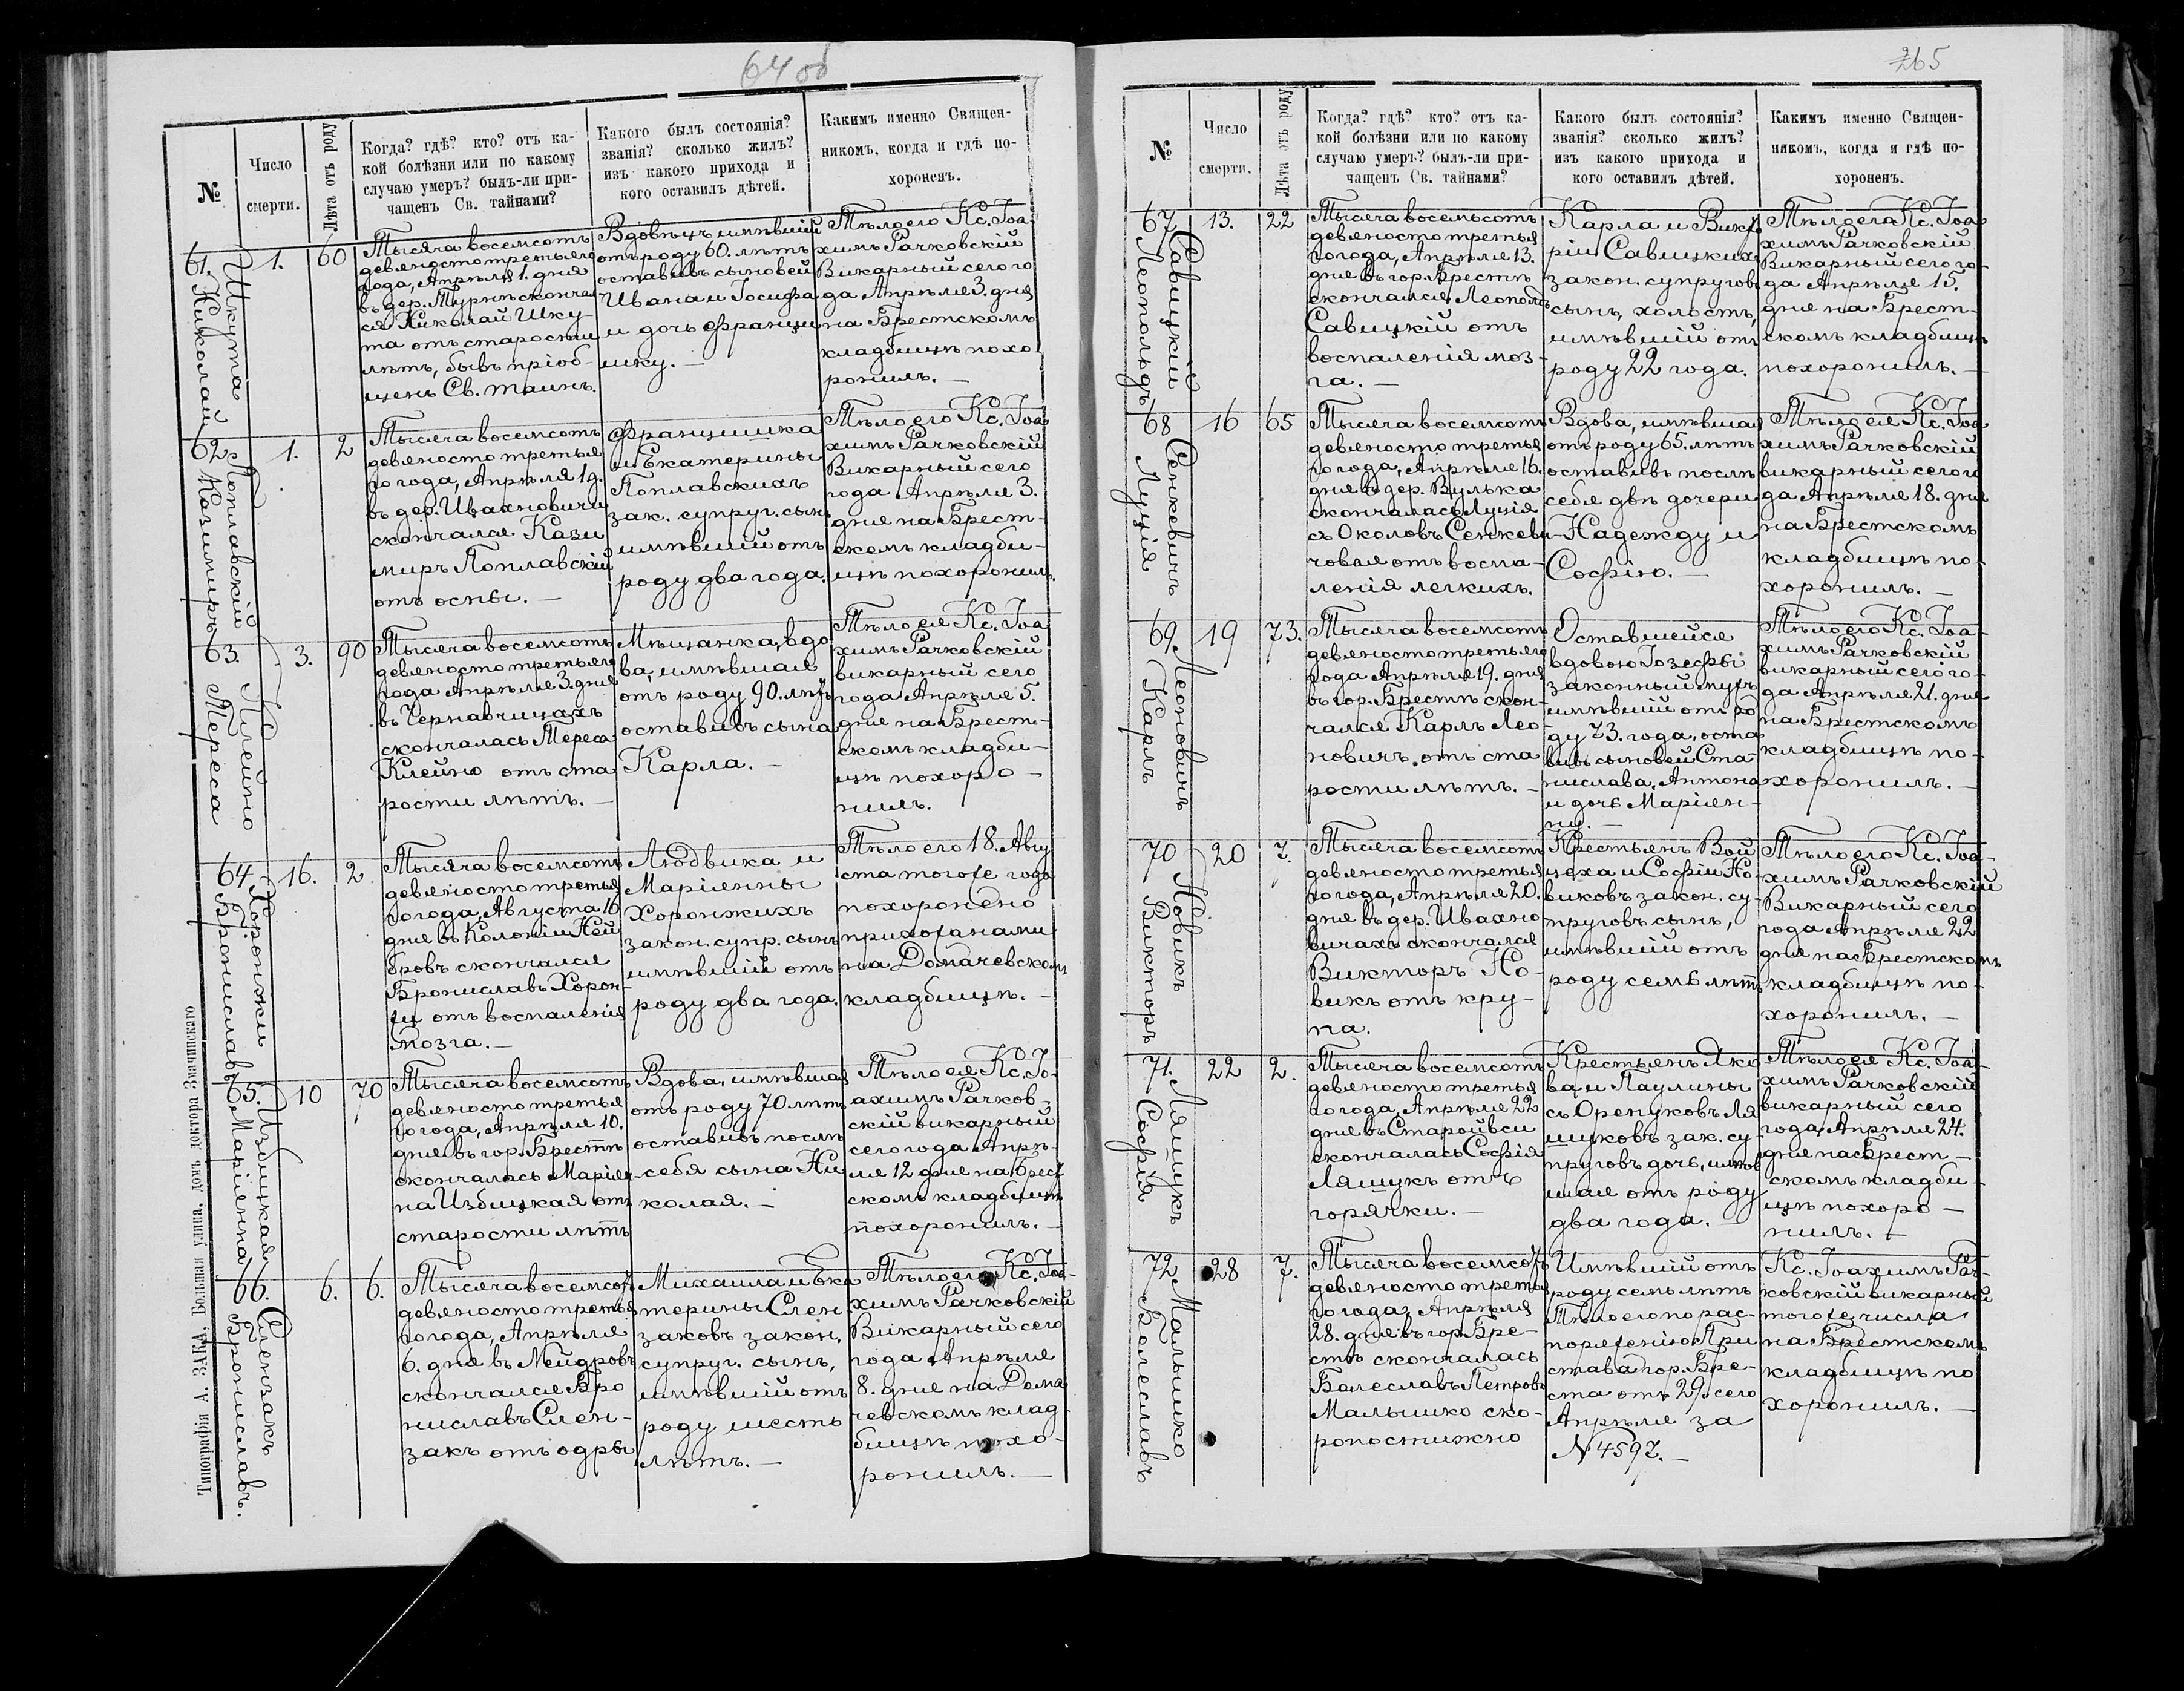 64 об
№
Число
смерти.
Лѣта отъ роду
Когда? гдѣ? кто? отъ ка-
кой болѣзни или по какому
случаю умеръ? былъ-ли при-
чащенъ Св. тайнами?
Какого былъ состоянія?
званія? сколько жилъ?
изъ какого прихода и
кого оставилъ дѣтей.
Какимъ именно Священ-
никомъ, когда и гдѣ по-
хороненъ.
61.
Шкута
Николай
1.
60
Тысяча восемсотъ
девяносто третьяго
года, Апрѣля 1. дня
въ дер. Турнѣ сконча
ся Николай Шку-
та отъ старости
лѣтъ, бывъ пріоб-
щенъ Св. таинъ.
Вдовецъ имѣвшій
отъ роду 60. лѣтъ
оставивъ сыновей
Ивана и Іосифа
и дочь Франци
шку. —
Тѣло его Кс. Іоа
химъ Рачковскій
Викарный сего го
да Апрѣля 3. дня
на Брестскомъ
кладбищѣ похо
ронилъ. —
62.
Поплавскій
Казимиръ
1.
2
Тысяча восемсотъ
девяносто третья
го года, Апрѣля 1 д.
въ дер. Ивахновичи
скончался Кази
миръ Поплавскій
отъ оспы. —
Францишка
и Екатерины
Поплавскихъ
зак. супруг. сынъ
имѣвшій отъ
роду два года.
Тѣло его Кс. Іоа
химъ Рачковскій
Викарный сего
года Апрѣля 3.
дня на Брест-
скомъ кладби-
щѣ похоронилъ.
63.
Клейно
Тереса
3.
90
Тысяча восемсотъ
девяносто третьяго
года Апрѣля 3. дня
въ Чернавчицахъ
скончалась Тереса
Клейно отъ ста
рости лѣтъ. —
Мѣщанка, вдо
ва, имѣвшая
отъ роду 90. лѣтъ
оставивъ сына
Карла. —
Тѣло ея Кс. Іоа
химъ Рачковскій
викарный сего
года Апрѣля 5.
дня на Брест-
скомъ кладби-
щѣ похоро-
нилъ.
64.
Хоронжи
Брониславъ
16.
2
Тысяча восемсотъ
девяносто третья
го года, Августа 16
дня въ Колоніи Ней
бровъ скончался
Брониславъ Хорон-
жи отъ воспаленія
мозга. —
Людвика и
Маріянны
Хоронжихъ
закон. супр. сынъ
имѣвшій отъ
роду два года.
Тѣло его 18. Авгу
ста тогоже года
похоронено
прихожанами
на Домачевскомъ
кладбищѣ. —
65.
Избицкая
Маріянна
10
70
Тысяча восемсотъ
девяносто третья
го года, Апрѣля 10.
дня въ гор. Брестѣ
скончалась Маріян-
на Избицкая отъ
старости лѣтъ
Вдова, имѣвшая
отъ роду 70 лѣтъ
оставивъ послѣ
себя сына Ни
колая. —
Тѣло ея Кс. Іо-
ахимъ Рачков-
скій викарный
сего года Апрѣ-
ля 12 дня на Брест
скомъ кладбищѣ
похоронилъ. —
66.
Слензакъ
Брониславъ.
6.
6.
Тысяча восемсотъ
девяносто третья
го года, Апрѣля
6. дня въ Мейдровъ
скончался Бро
ниславъ Слен-
закъ отъ одры
Михаила и Ека
терины Слен
заковъ закон.
супруг. сынъ,
имѣвшій отъ
роду шесть
лѣтъ. —
Тѣло его Кс. Іоа-
химъ Рачковскій
Викарный сего
года Апрѣля
8. дня на Дома
чевскомъ клад-
бищѣ похо-
ронилъ. —
Типографія А. ЗАКА, Большая улица, домъ доктора Значинскаго
265
№
Число
смерти.
Лѣта отъ роду
Когда? гдѣ? кто? отъ ка-
кой болѣзни или по какому
случаю умеръ? былъ-ли при-
чащенъ Св. тайнами?
Какого былъ состоянія?
званія? сколько жилъ?
изъ какого прихода и
кого оставилъ дѣтей.
Какимъ именно Священ-
никомъ, когда и гдѣ по-
хороненъ.
67
Савицкій
Леопольдъ
13.
22
Тысяча восемьсотъ
девяносто третья
го года, Апрѣля 13.
дня въ гор. Брестѣ
скончался Леопольдъ
Савицкій отъ
воспаленія моз-
га. —
Карла и Викто
ріи Савицкихъ
закон. супруговъ
сынъ, холостъ,
имѣвшій отъ
роду 22 года.
Тѣло его Кс. Іоа
химъ Рачковскій
Викарный сего го-
да Апрѣля 15.
дня на Брест-
скомъ кладбищѣ
похоронилъ. —
68
Сенкевичъ
Луція
16
65
Тысяча восемсотъ
девяносто третья
го года, Апрѣля 16.
дня въ дер. Вулька
скончалась Луція
съ Околовъ Сенкеви-
човая отъ воспа-
ленія легкихъ.
Вдова, имѣвшая
отъ роду 65. лѣтъ
оставивъ послѣ
себя двѣ дочери
Надежду и
Софію. —
Тѣло ея Кс. Іоа
химъ Рачковскій
викарный сего го
да Апрѣля 18. дня
на Брестскомъ
кладбищѣ по
хоронилъ. —
69.
Леоновичъ
Карлъ
19
73.
Тысяча восемсотъ
девяносто третьяго
года Апрѣля 19. дня
въ гор. Брестѣ скон-
чался Карлъ Лео-
новичъ, отъ ста
рости лѣтъ. —
Оставшейся
вдовою Іозефы
законный мужъ
имѣвшій отъ ро
ду 73. года, оста
вивъ сыновей Ста-
нислава, Антона
и дочь Маріян-
ну. —
Тѣло его Кс. Іоа-
химъ Рачковскій
викарный сего го-
да Апрѣля 21. дня
на Брестскомъ
кладбищѣ по-
хоронилъ. —
70
Новикъ
Викторъ
20
7.
Тысяча восемсотъ
девяносто третья
го года, Апрѣля 20.
дня въ дер. Ивахно
вичахъ скончался
Викторъ Но-
викъ отъ кру-
па.
Крестьянъ Вой
цѣха и Софіи Но-
виковъ закон. су-
пруговъ сынъ,
имѣвшій отъ
роду семь лѣтъ
Тѣло его Кс. Іоа-
химъ Рачковскій
Викарный сего
года Апрѣля 22
дня на Брестскомъ
кладбищѣ по-
хоронилъ. —
71.
Ляшукъ
Софія
22
2.
Тысяча восемсотъ
девяносто третья
го года, Апрѣля 22
дня въ Старой вси
скончалась Софія
Ляшукъ отъ
горячки. —
Крестьянъ Яко
ва и Паулины
съ Оренуковъ Ля
шуковъ зак. су
пруговъ дочь, имѣв
шая отъ роду
два года. —
Тѣло ея Кс. Іоа-
химъ Рачковскій
викарный сего
года, Апрѣля 24.
дня на Брест-
скомъ кладби-
щѣ похоро-
нилъ. —
72
Малышко
Болеславъ
28
7.
Тысяча восемсотъ
девяносто третья
го года Апрѣля
28. дня въ гор. Бре-
стѣ скончалась
Балеславъ Петровъ
Малышко ско-
ропостижно
Имѣвшій отъ
роду семь лѣтъ
Тѣло его по рас-
поряженію При
става гор. Бре-
ста отъ 29. сего
Апрѣля за
№ 4597. —
Кс. Іоахимъ Рач-
ковскій викарный
тогоже числа
на Брестскомъ
кладбищѣ по
хоронилъ. —